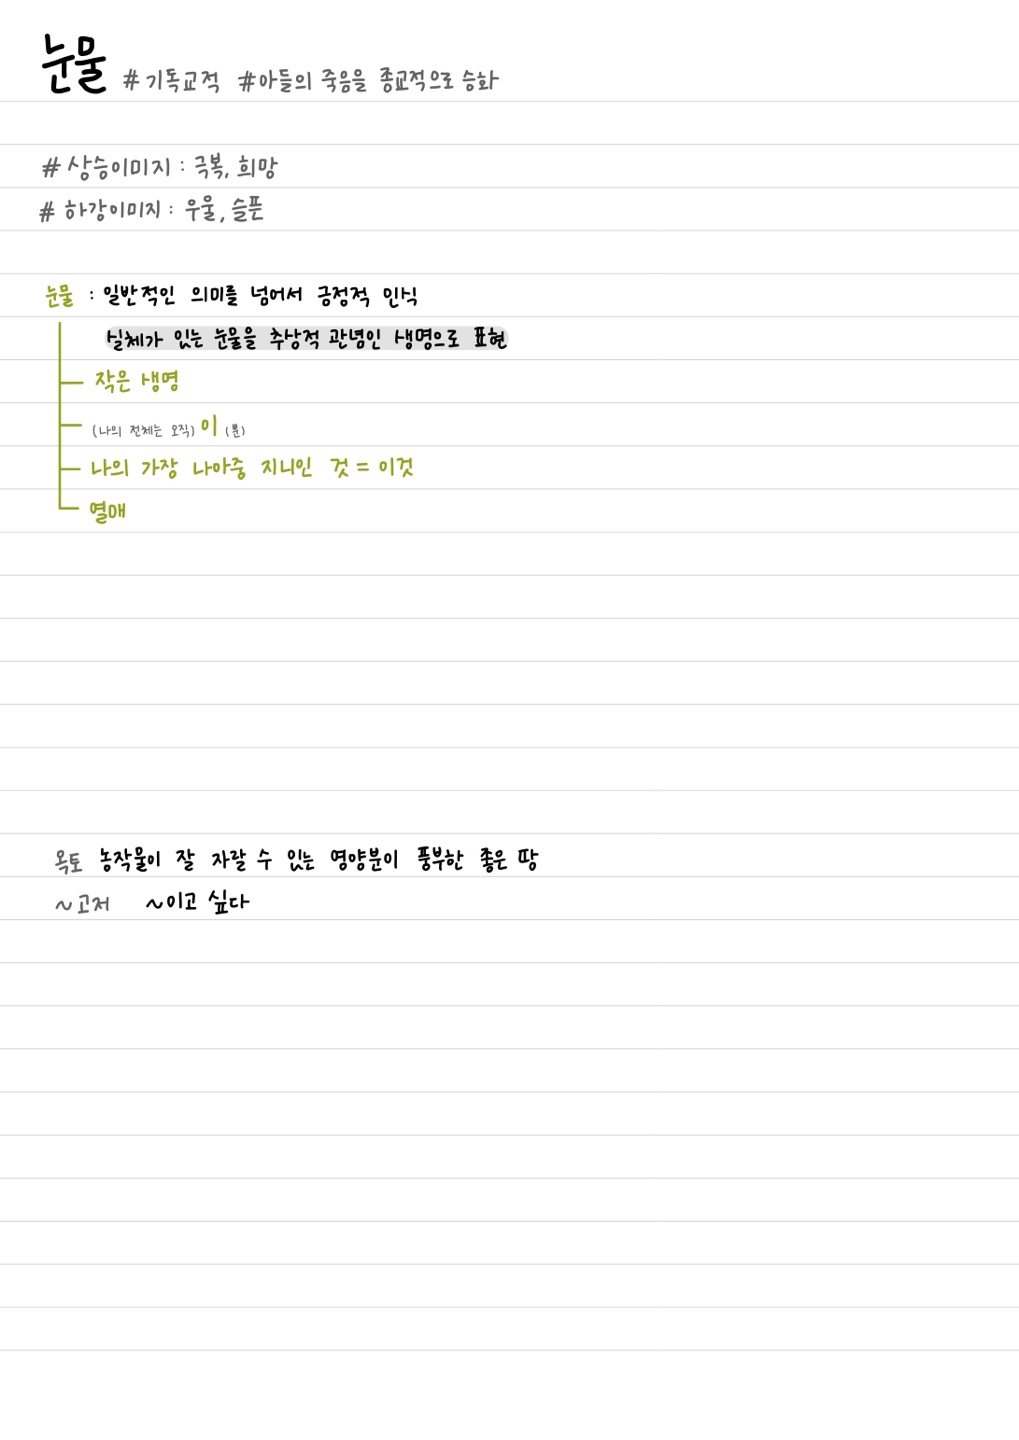 눈물 #기독교적 #아들의 죽음을 종교적으로 승화
# 상승이미지 : 극복, 희망
# 하강이미지 : 우울, 슬픈
눈물 : 일반적인 의미를 넘어서 긍정적 인식
실체가 있는 눈물을 추상적 관념인 생명으로 표현
작은 생명
(나의 전체는 오직) 이 (뿐)
나의 가장 나아중 지니인 것 = 이것
열매
옥토 농작물이 잘 자랄 수 있는 영양분이 풍부한 좋은 땅
~고저 ~이고 싶다